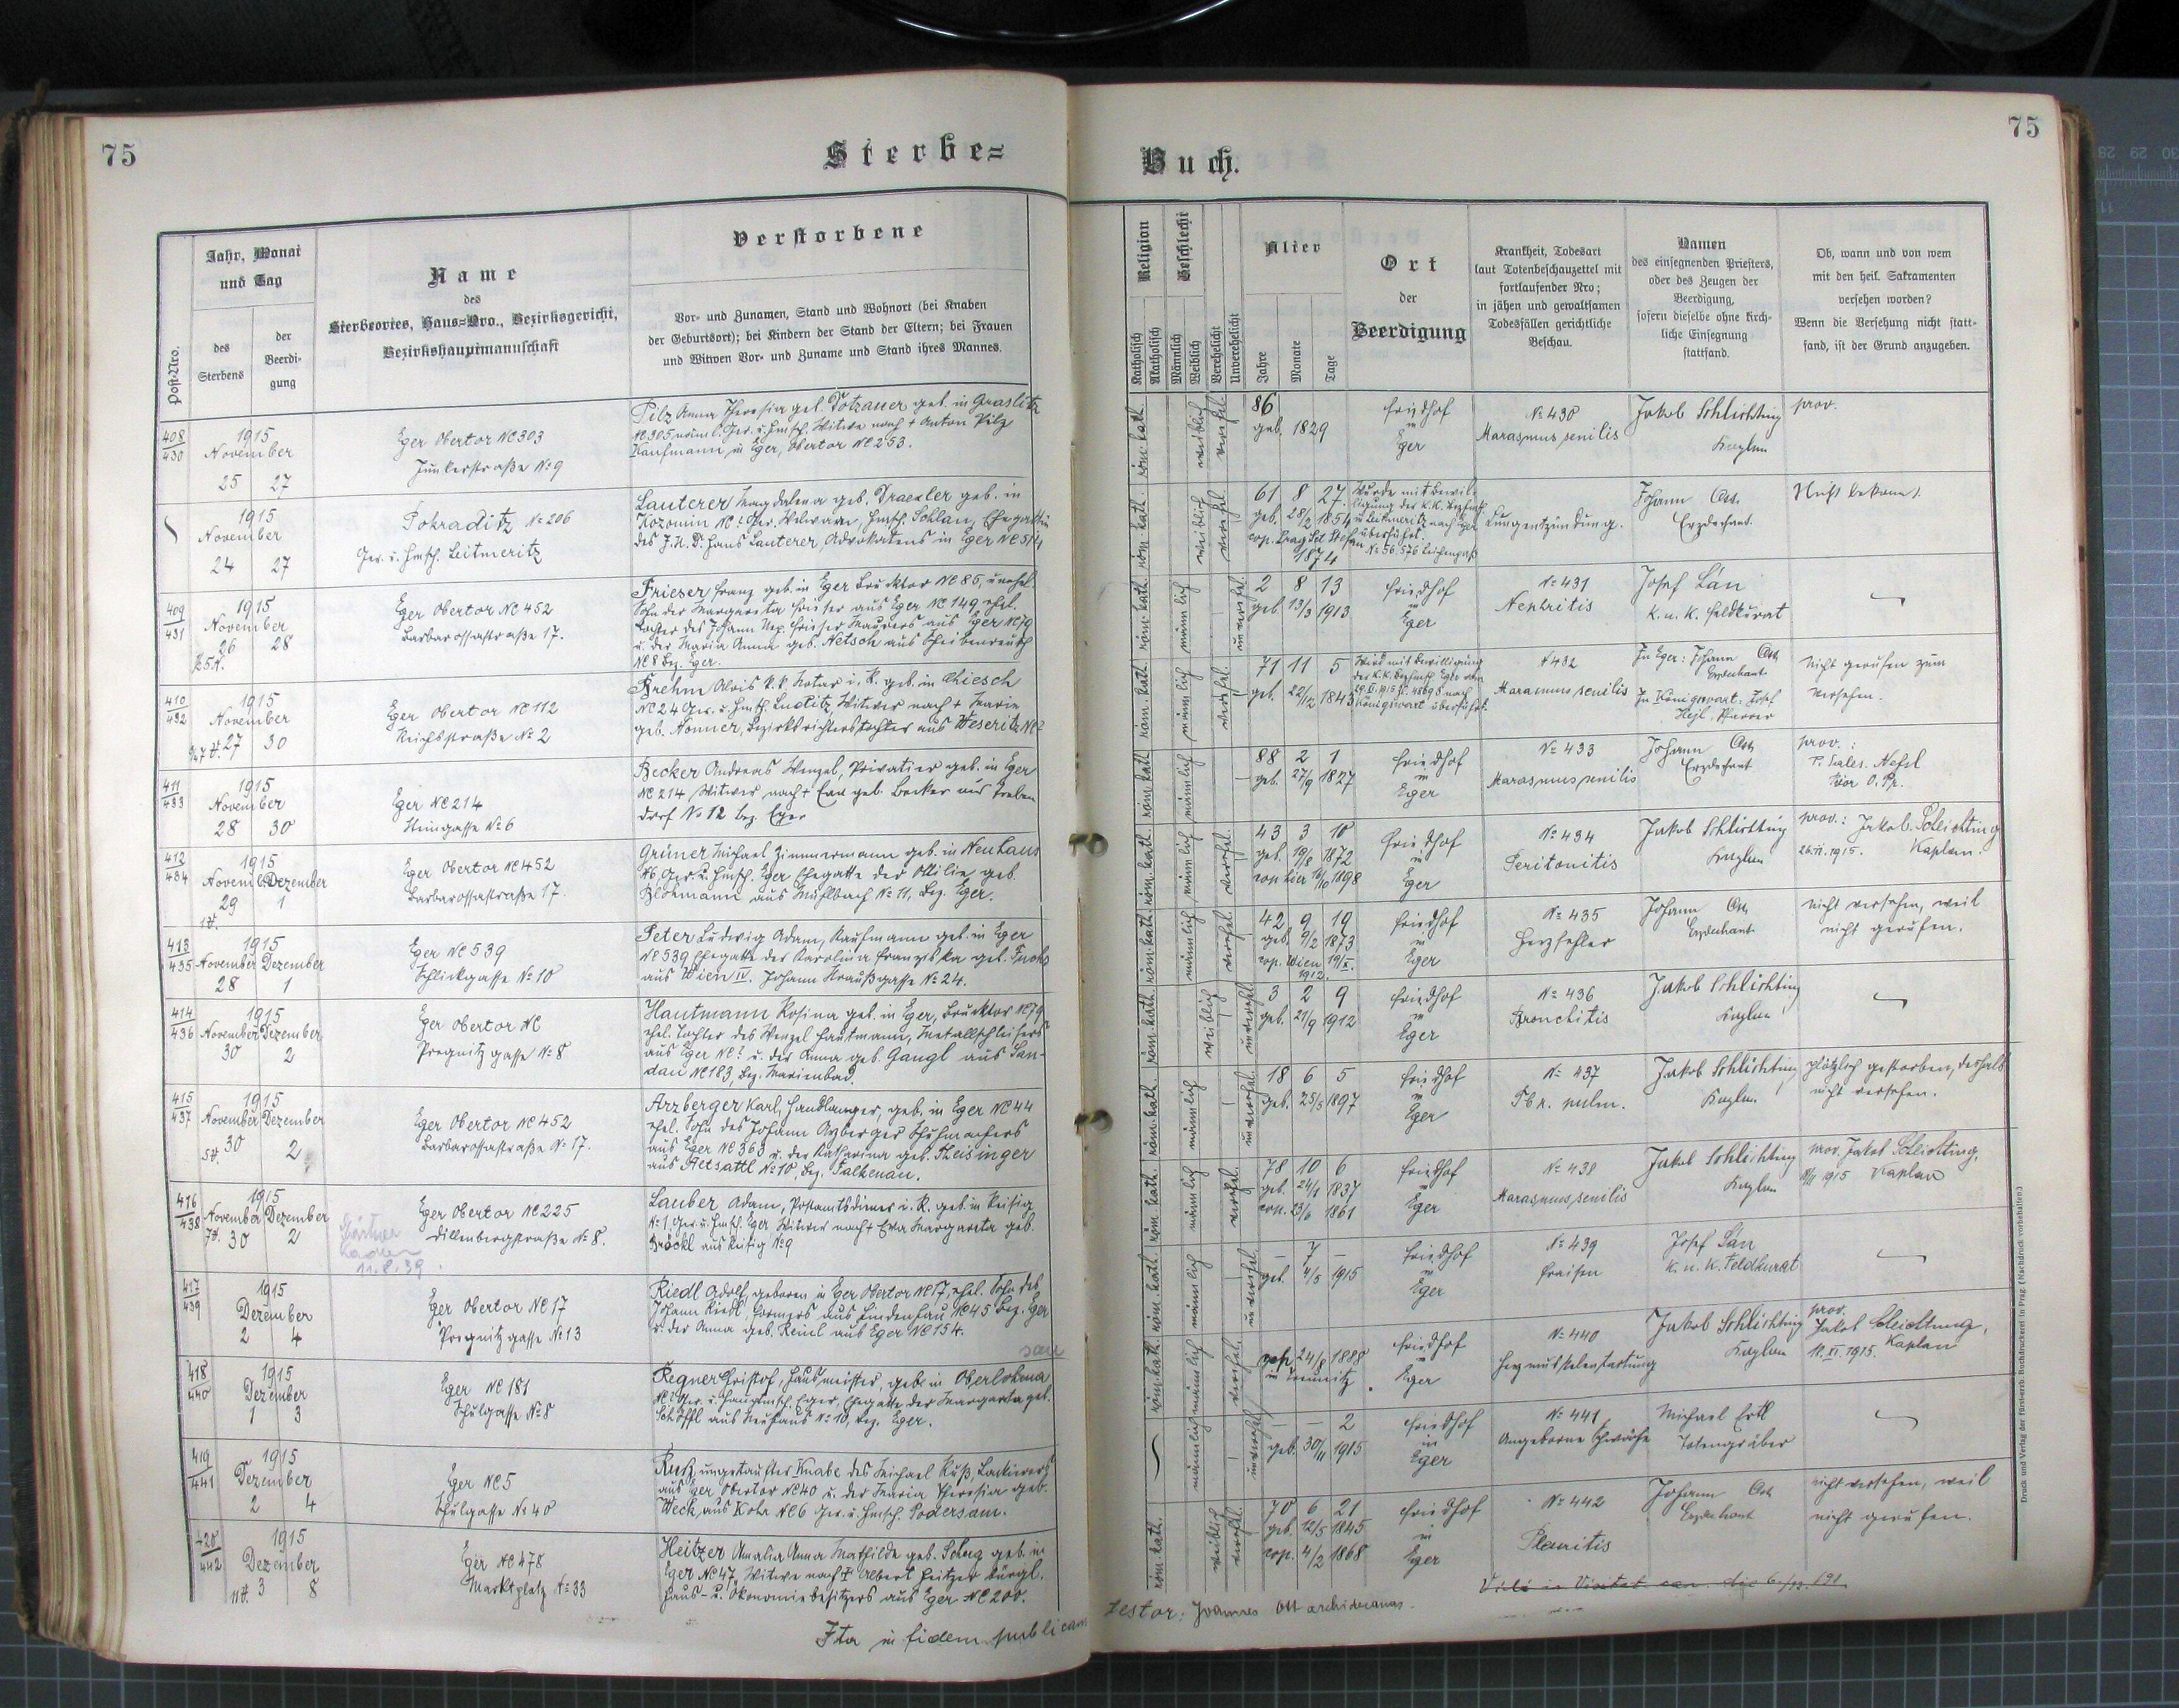 75
Sterbe=
Buch.
75
Post-Nro.
Jahr, Monat
und Tag
des
Sterbens
der
Beerdi-
gung
Name
des
Sterbeortes, Haus-Nro., Bezirksgericht,
Bezirkshauptmannschaft
Verstorbene
Vor- und Zunamen, Stand und Wohnort (bei Knaben
der Geburtsort); bei Kindern der Stand der Eltern; bei Frauen
und Witwen Vor- und Zuname und Stand ihres Mannes.
Religion
Katholisch
Akatholisch
Geschlecht
Männlich
Weiblich
Verehelicht
Unverehelicht
Alter
Jahre
Monate
Tage
Ort
der
Beerdigung
Krankheit, Todesart
laut Totenbeschauzettel mit
fortlaufender Nro;
in jähen und gewaltsamen
Todesfällen gerichtliche
Beschau.
Namen
des einsegnenden Priesters,
oder des Zeugen der
Beerdigung,
sofern dieselbe ohne kirch-
liche Einsegnung
stattfand.
Ob, wann und von wem
mit den heil. Sakramenten
versehen worden?
Wenn die Versehung nicht statt-
fand, ist der Grund anzugeben.
408
430
1915
November
25 27
Eger Obertor NC 303
Junkerstraße No 9
Pilz Anna Theresia geb. Totzauer geb. in Graslitz
NC 305 Ger. u. Hmsch. Witwe nach + Anton Pilz
Kaufmann in Eger, Obertor NC 253.
röm. kath.
weiblich
verehel.
86
geb. 1829
Friedhof
in
Eger
No 430
Marasmus senilis
Jakob Schlichting
Kaplan
prov.
1915
November
24 27
Pokraditz No 206
Ger. u. Hmsch. Leitmeritz
Lauterer Magdalena geb. Draexler geb. in
Kozomin NC ? Ger. Welwarn, Hmsch. Schlan, Ehegattin
des J. U. Dr. Hans Lauterer, Advokatens in Eger NC 574
röm. kath.
weiblich
verehel.
61 8 27
geb. 28/2 1854
cop. Prag Sct Stefan
1874
Wurde mit Bewil-
ligung der K.K. Bezhmsch.
in Leitmeritz nach Eger
überführt.
No 56.576 Leichenpaß
Lungentzündung.
Johann Ott
Erzdechant.
Nicht bekannt.
409
431
1915
November
26 28
Eger Obertor NC 452
Barbarossastraße 17.
Frieser Franz geb. in Eger Brucktor NC 85, unehel.
Sohn der Margareta Frieser aus Eger NC 149, ehel.
Tochter des Johann Nep. Frieser Maurers aus Eger NC 79
u. der Maria Anna geb. Netsch aus Scheibenreuth
NC 8 Bez. Eger.
röm. kath.
männlich
unverehel.
2 8 13
geb. 13/3 1913
Friedhof
in
Eger
No 431
Nephritis
Josef Lán
k. u. k. Feldkurat
410
432
1915
November
27 30
Eger Obertor NC 112
Reichsstraße No 2
Brehm Alois k.k. Notar i. R. geb. in Chiesch
NC 24 Ger. u. Hmsch. Luditz, Witwer nach + Maria
geb. Nonner, Bezirksrichterstochter aus Weseritz NC ?
röm. kath.
männlich
verehel.
71 11 5
geb. 22/12 1843
Wird mit Bewilligung
der K.K. Bezhmsch. Eger vom
29.XI.1915 nach
Königswart überführt.
No 432
Marasmus senilis
In Eger: Johann Ott
Erzdechant
In Königswart: Josef
Hejl, Pfarrer
nicht gerufen zum
versehen.
411
433
1915
November
28 30
Eger NC 214
Steingasse No 6
Becker Andreas Wenzel, Privatier geb. in Eger
NC 214, Witwer nach + Eva geb. Becker aus Treben
dorf No 12 Bez. Eger
röm. kath.
männlich
88 2 1
geb. 27/9 1827
Friedhof
in
Eger
No 433
Marasmus senilis
Johann Ott
Erzdechant
prov.:
P. Sales.
Prior O. Pr.
412
434
1915
November Dezember
29 1
Eger Obertor NC 452
Barbarossastraße 17.
Grüner Michael Zimmermann geb. in Neuhaus
N 6, Ger. u. Hmsch. Eger Ehegatte der Ottilie geb.
Blohmann aus Mühlbach No 11, Bez. Eger.
röm. kath.
männlich
verehel.
43 3 10
geb. 19/8 1872
cop. hier 16/10 1898
Friedhof
in
Eger
No 434
Peritonitis
Jakob Schlichting
Kaplan
prov.: Jakob Schlichting
26.XI.1915. Kaplan.
413
435
1915
November Dezember
28 1
Eger NC 539
Schlickgasse No 10
Peter Ludwig Adam, Kaufmann geb. in Eger
NC 539 Ehegatte der Karolina Franziska geb. Fuchs
aus Wien IV. Johann Straußgasse No 24.
röm. kath.
männlich
verehel.
42 9 19
geb. 9/2 1873
cop. Wien 19/X.
1912.
Friedhof
in
Eger
No 435
Herzfehler
Johann Ott
Erzdechant
nicht versehen, weil
nicht gerufen.
414
436
1915
November Dezember
30 2
Eger Obertor NC
Pregnitzgasse No 8
Hautmann Rosina geb. in Eger, Brucktor NC 79
ehel. Tochter des Wenzel Hautmann, Metallschleifers
aus Eger NC ? u. der Anna geb. Gangl aus San-
dau NC 183, Bez. Marienbad.
röm. kath.
weiblich
unverehel.
3 2 9
geb. 21/9 1912
Friedhof
in
Eger
No 436
Bronchitis
Jakob Schlichting
Kaplan
415
437
1915
November Dezember
30 2
Eger Obertor NC 452
Barbarossastraße No 17.
Arzberger Karl, Handlanger, geb. in Eger NC 44
ehel. Sohn des Johann Arzberger Schuhmachers
aus Eger NC 363 u. der Katharina geb. Theisinger
aus Altsattl No 10, Bez. Falkenau.
röm. kath.
männlich
unverehel.
18 6 5
geb. 25/5 1897
Friedhof
in
Eger
No 437
Tbk. pulm.
Jakob Schlichting
Kaplan
plötzlich gestorben, deshalb
nicht versehen.
416
438
1915
November Dezember
30 2
Eger Obertor NC 225
Dillenbergstraße No 8.
11.8.39.
Lauber Adam, Postamtsdiener i. R. geb. in Reisig
No 1 Ger. u. Hmsch. Eger, Witwer nach + Eva Margareta geb.
Bröckl aus Reisig No 9
röm. kath.
männlich
verehel.
78 10 6
geb. 24/1 1837
cop. 23/6 1861
Friedhof
in
Eger
No 438
Marasmus senilis
Jakob Schlichting
Kaplan
prov. Jakob Schlichting,
1915 Kaplan
417
439
1915
Dezember
2 4
Eger Obertor NC 17
Pregnitzgasse No 13
Riedl Adolf, geboren in Eger Obertor NC 17, ehel. Sohn des
Johann Riedl, Formers aus Lindenhau NC 45 Bez. Eger
u. der Anna geb. Reinl aus Eger NC 154.
röm. kath.
männlich
unverehel.
– 7 –
geb. 4/5 1915
Friedhof
in
Eger
No 439
Fraisen
Josef Lán
k. u. k. Feldkurat
418
440
1915
Dezember
1 3
Eger NC 181
Schulgasse No 8
Regner Christof, Hausmeister, geb. in Oberlohma
NC ? Ger. u. Hauptmsch. Eger, Ehegatte der Margareta geb.
Schöffl aus Neuhaus No 10, Bez. Eger.
röm. kath.
männlich
verehel.
24/8 1888
Friedhof
in
Eger
No 440
Herzmuskelentartung
Jakob Schlichting
Kaplan
prov.
Jakob Schlichting,
11.XI.1915. Kaplan
419
441
1915
Dezember
2 4
Eger NC 5
Schulgasse No 40
Ruß, ungetaufter Knabe des Michael Ruß, Lackierers
aus Eger Obertor NC 40 u. der Maria Theresia geb.
Weck, aus Kotr NC 6 Ger. u. Hmsch. Podersam.
männlich
unverehel.
– – 2
geb. 30/11 1915
Friedhof
in
Eger
No 441
Angeborne Schwäche
Michael Ertl
Totengräber
420
442
1915
Dezember
3 8
Eger NC 478
Marktplatz No 33
Heitzer Amalia Anna Mathilde geb. Schug geb. in
Eger NC 47, Witwe nach + Albert Heitzer bürgl.
Haus- u. Ökonomiebesitzers aus Eger NC 200.
röm. kath.
weiblich
verehel.
70 6 21
geb. 12/5 1845
cop. 4/2 1868
Friedhof
in
Eger
No 442
Pleuritis
Johann Ott
Erzdechant
nicht versehen, weil
nicht gerufen.
Ita in fidem publicam
testor: Joannes Ott archidecanus.
Druck und Verlag der fürsterzb. Buchdruckerei in Prag. (Nachdruck vorbehalten.)